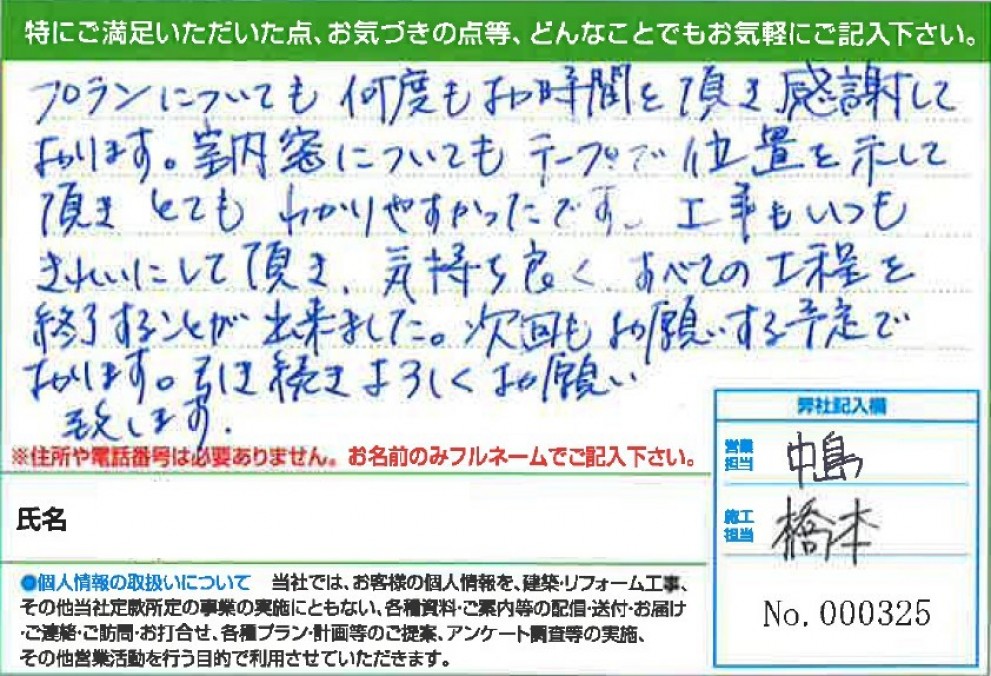 特にご満足いただいた点、お気づきの点等、どんなことでもお気軽にご記入下さい。
プランについても何度もお時間を頂き感謝して
おります。室内窓についてもテープで位置を示して
頂きとてもわかりやすかったです。工事もいつも
きれいにして頂き、気持ち良くすべての工程を
終了することが出来ました。次回もお願いする予定で
おります。引き続きよろしくお願い
致します。
※住所や電話番号は必要ありません。お名前のみフルネームでご記入下さい。
氏名
●個人情報の取扱いについて 当社では、お客様の個人情報を、建築・リフォーム工事、
その他当社定款所定の事業の実施にともない、各種資料・ご案内等の配信・送付・お届け
・ご連絡・ご訪問・お打合せ、各種プラン・計画等のご提案、アンケート調査等の実施、
その他営業活動を行う目的で利用させていただきます。
弊社記入欄
営業担当 中島
施工担当 橋本
No. 000325